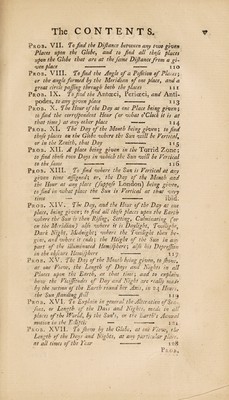 The CONTENTS. v
PROB. VII. To find the Distance between any two given
Places upon the Globe, and to find all those places
upon the Globe that are at the same Distance from a gi-
ven place 110
PROB. VIII. To find the Angle of a Position of Places;
or the angle formed by the Meridian of one place, and a
great circle passing through both the places 111
PROB. IX. To find the Antœci, Periœci, and Anti-
podes, to any given place 113
PROB. X. The Hour of the Day at one Place being given;
to find the correspondent Hour (or what o'Clock it is at
that time) at any other place 114
PROB. XI. The Day of the Month being given; to find
those places on the Globe where the Sun will be Vertical,
or in the Zenith, that Day 115
PROB. XII. A place being given in the Torrid Zone;
to find those two Days in which the Sun will be Vertical
to the same 116
PROB. XIII. To find where the Sun is Vertical at any
given time assigned; or, the Day of the Month and
the Hour at any place (suppose London) being given,
to find in what place the Sun is Vertical at that very
time ibid.
PROB. XIV. The Day, and the Hour of the Day at one
place, being given; to find all those places upon the Earth
where the Sun is then Rising, Setting, Culminating (or
on the Meridian) also where it is Daylight, Twilight,
Dark Night, Midnight; where the Twilight then be-
gins, and where it ends; the Height of the Sun in any
part of the illuminated Hemisphere; also his Depression
in the obscure Hemisphere 117
PROB. XV. The Day of the Month being given, to show,
at one View, the Length of Days and Nights in all
Places upon the Earth, at that time; and to explain
how the Vicissitudes of Day and Night are really made
by the motion of the Earth round her Axis, in 24 Hours,
the Sun standing still 119
PROB. XVI. To Explain in general the Alteration of Sea-
sons, or Length of the Days and Nights, made in all
places of the World, by the Sun's, or the Earth's Annual
motion in the Ecliptic 121
PROB. XVII. To show by the Globe, at one View, the
Length of the Days and Nights, at any particular place,
at all times of the Year 128
PROB.